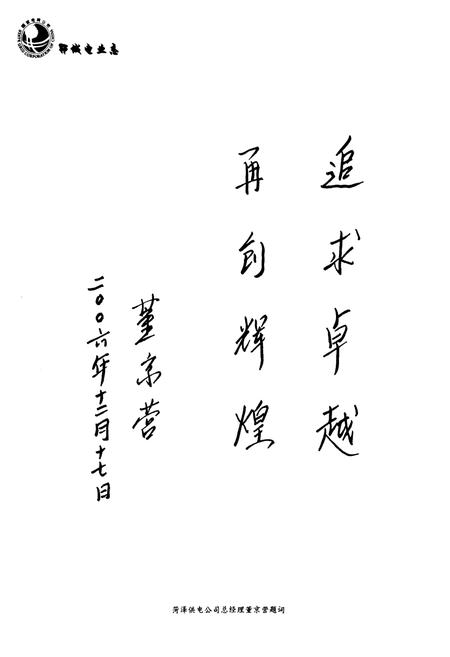 鄄城电业志
追求卓越
再创辉煌
董京营
二〇〇六年十二月十七日
菏泽供电公司总经理董京营题词